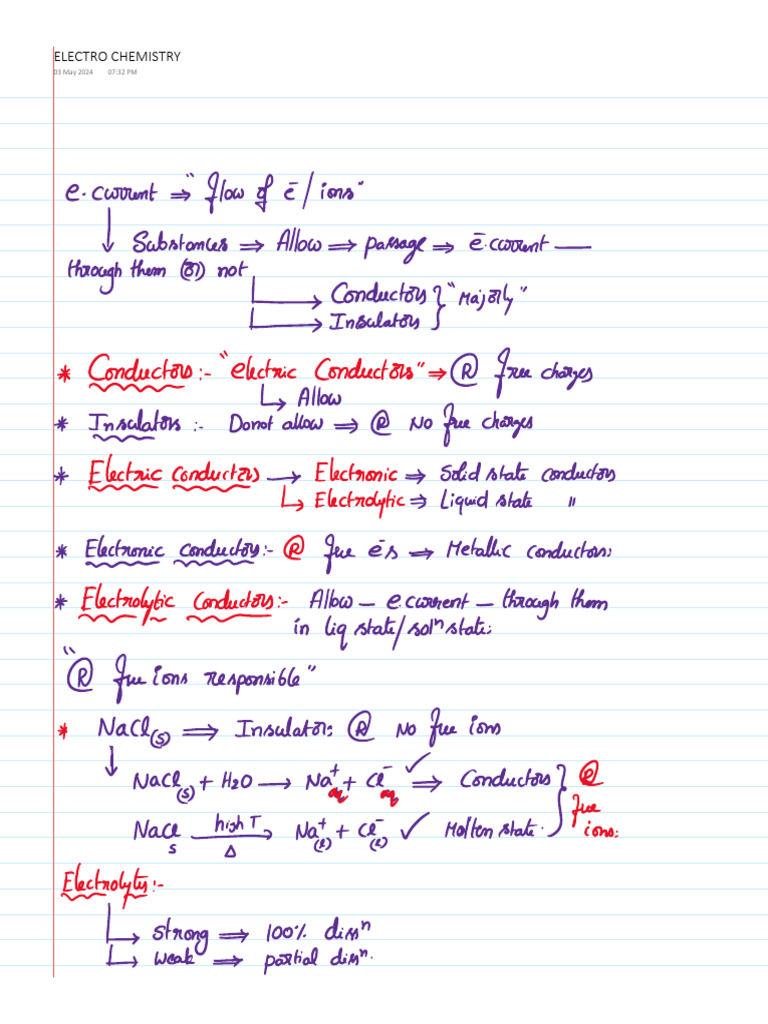 ELECTRO CHEMISTRY
03 May 2024 07:32 PM
e.current ⇒ "flow of e⁻/ions"
↓ Substances ⇒ Allow ⇒ passage ⇒ e⁻.current —
through them (or) not
→ Conductors } "Majorly"
→ Insulators }
* Conductors:- "electric Conductors" ⇒ Ⓡ free charges
↳ Allow
* Insulators :- Donot allow ⇒ Ⓡ No free charges
* Electric conductors → Electronic ⇒ Solid state conductors
↳ Electrolytic ⇒ Liquid state "
* Electronic conductors:- Ⓡ free e⁻s ⇒ Metallic conductors;
* Electrolytic Conductors:- Allow – e.current – through them
in liq state/solⁿ state;
"Ⓡ free ions responsible"
* NaCl(s) ⇒ Insulator: Ⓡ No free ions
↓ NaCl(s) + H2O → Na⁺aq + Cl⁻aq ✓ ⇒ Conductors } Ⓡ free ions:
NaCl s —high T/Δ→ Na⁺(l) + Cl⁻(l) ✓ Molten state.
Electrolytes:-
↳ strong ⇒ 100% dissⁿ
↳ weak ⇒ partial dissⁿ.